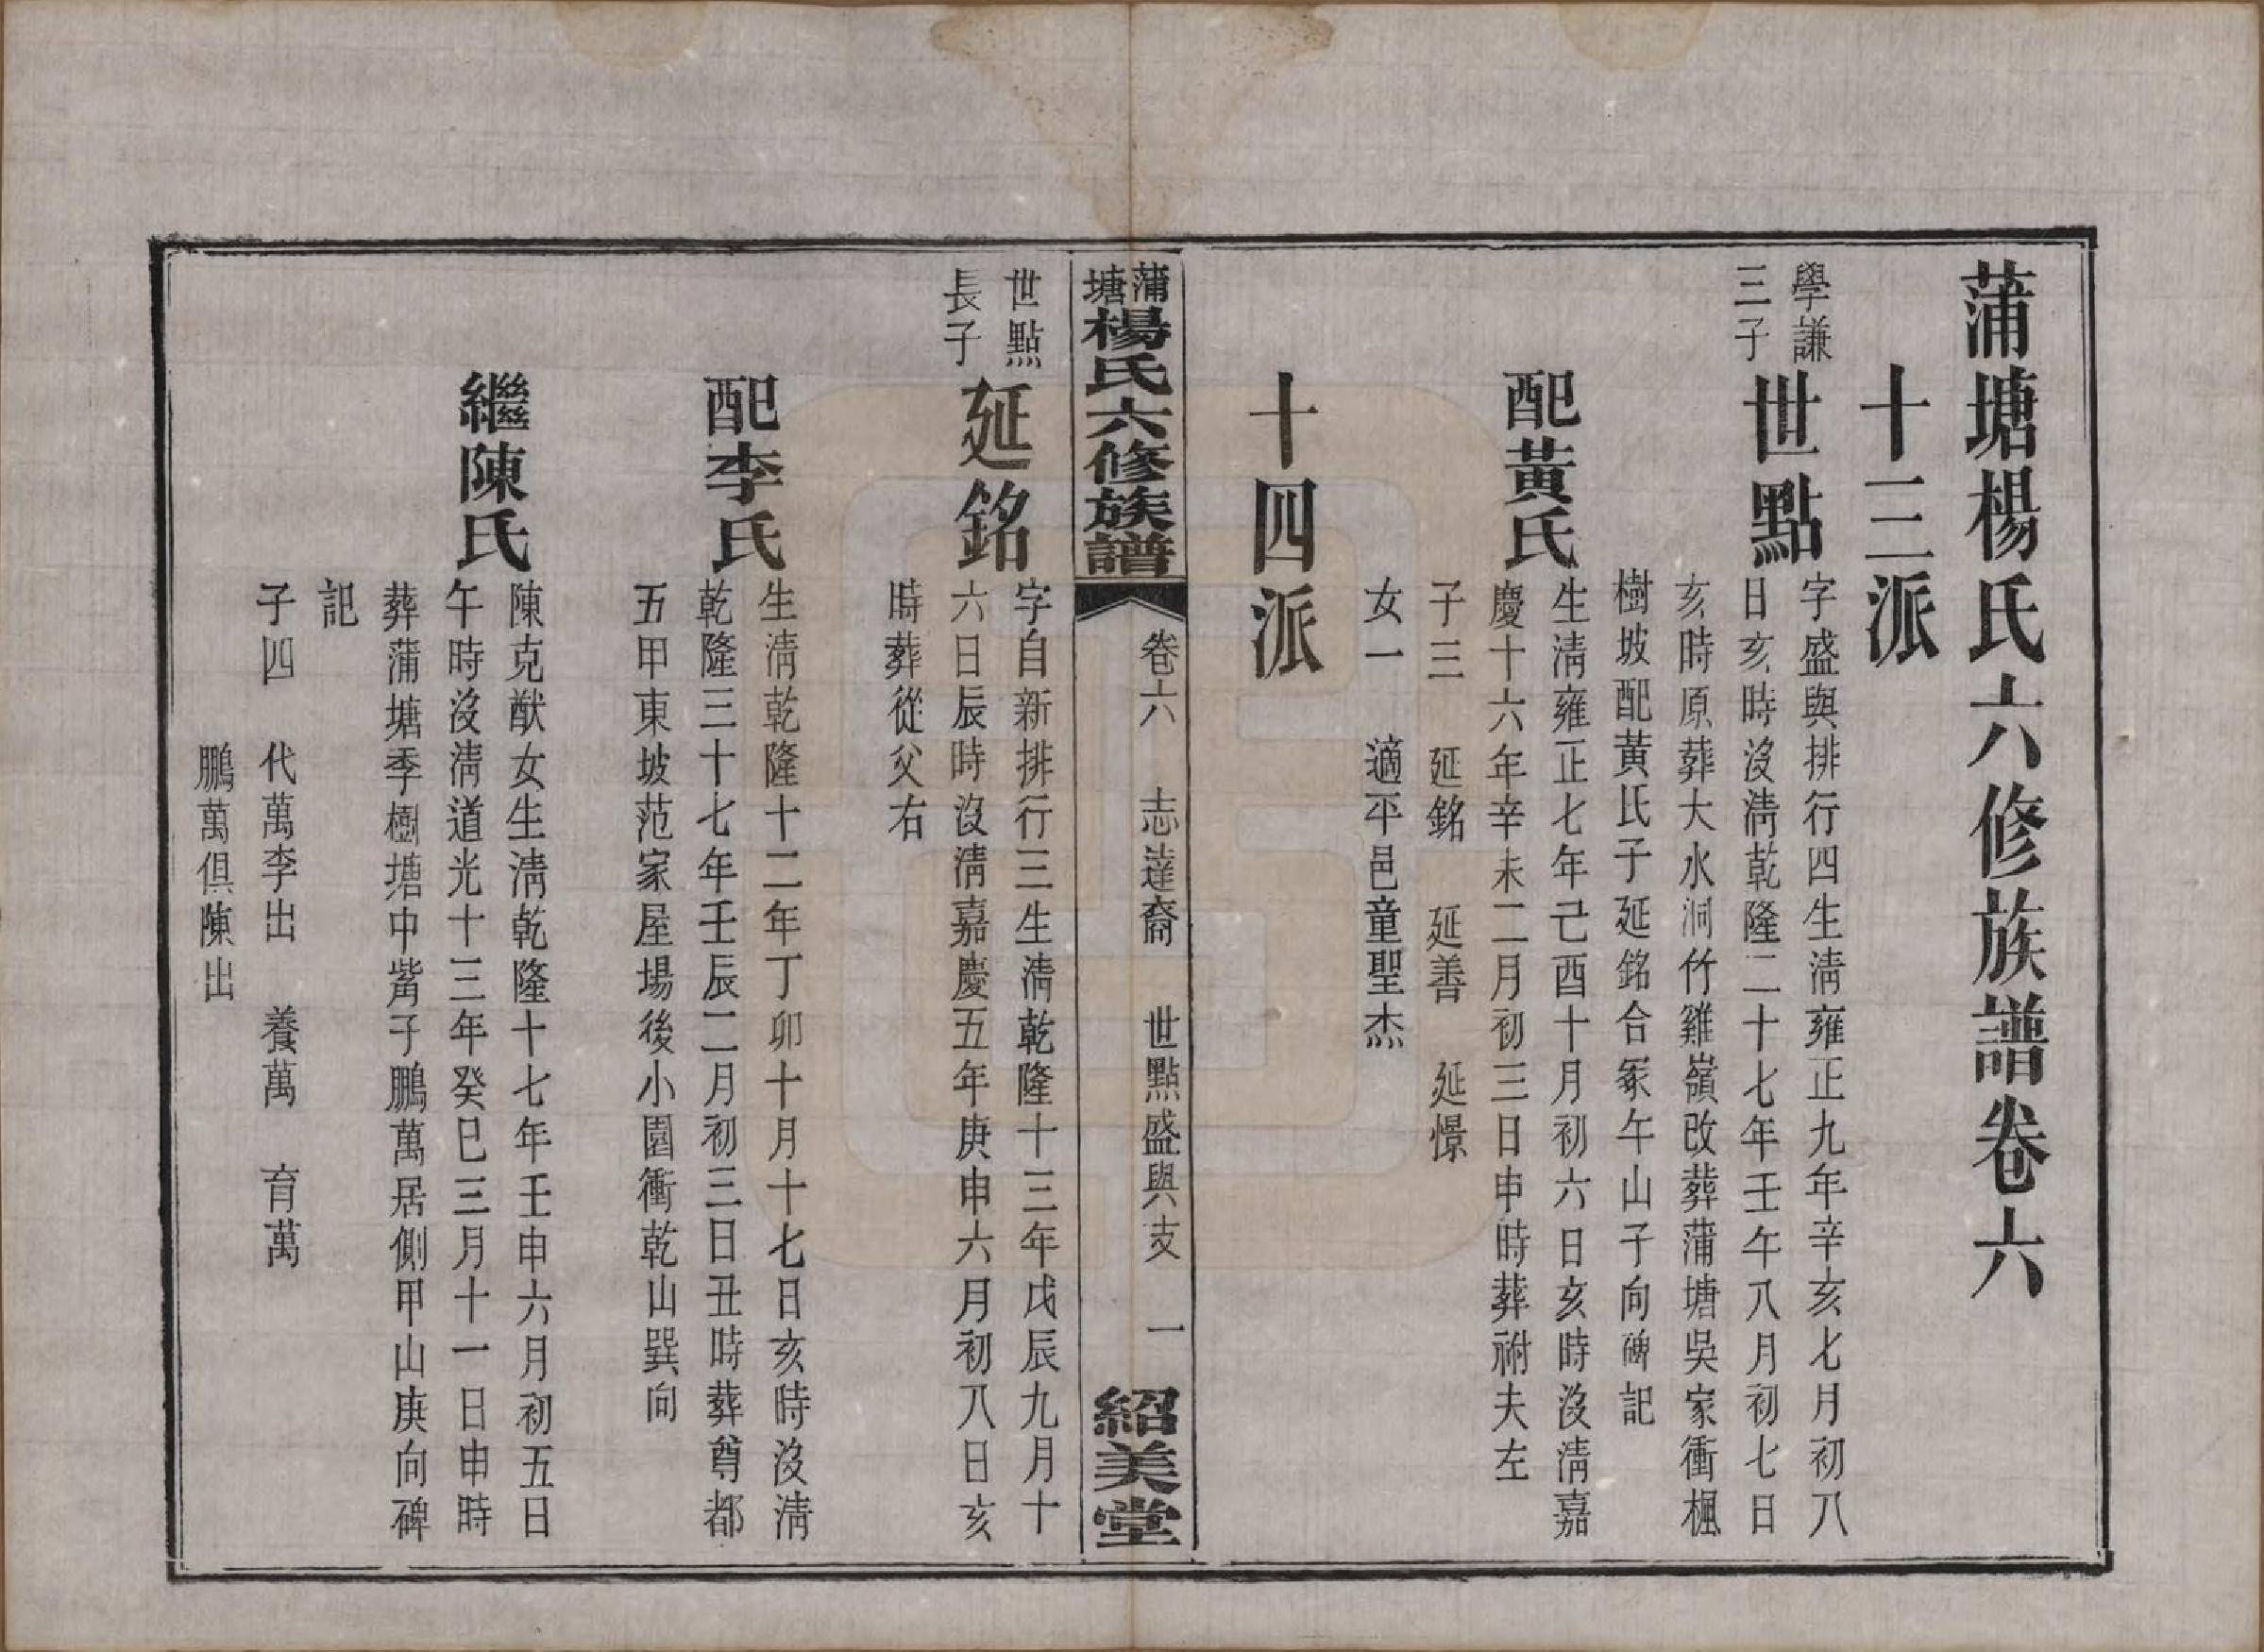 蒲塘楊氏六修族譜卷六
十三派
學謙
三子
世點
字盛與排行四生淸雍正九年辛亥七月初八
日亥時沒淸乾隆二十七年壬午八月初七日
亥時原葬大水洞竹雞嶺改葬蒲塘吳家衝楓
樹坡配黃氏子延銘合冢午山子向碑記
配黃氏
生淸雍正七年己酉十月初六日亥時沒淸嘉
慶十六年辛未二月初三日申時葬祔夫左
子三 延銘 延善 延憬
女一 適平邑童聖杰
十四派
蒲塘楊氏六修族譜
卷六 志達裔 世點盛與支 一
紹美堂
世點
長子
延銘
字自新排行三生淸乾隆十三年戊辰九月十
六日辰時沒淸嘉慶五年庚申六月初八日亥
時葬從父右
配李氏
生淸乾隆十二年丁卯十月十七日亥時沒淸
乾隆三十七年壬辰二月初三日丑時葬尊都
五甲東坡范家屋場後小園衝乾山巽向
繼陳氏
陳克猷女生淸乾隆十七年壬申六月初五日
午時沒淸道光十三年癸巳三月十一日申時
葬蒲塘季樹塘中觜子鵬萬居側甲山庚向碑
記
子四 代萬李出 養萬 育萬
鵬萬俱陳出